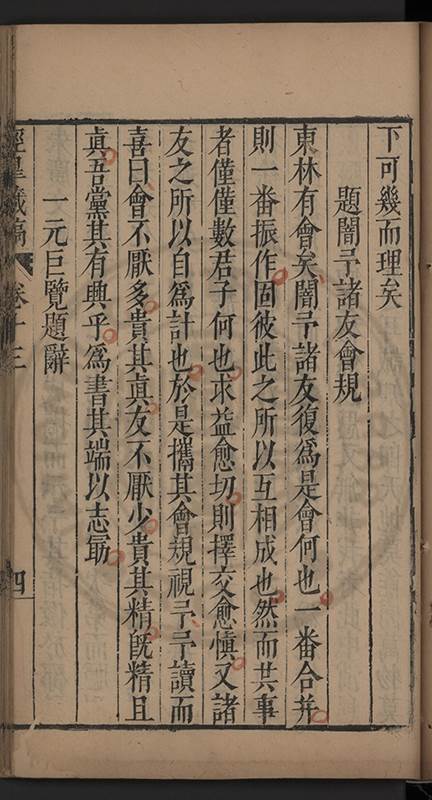 下可幾而理矣
題闇予諸友會規
東林有會矣闇予諸友復爲是會何也一番合并
則一番振作固彼此之所以互相成也然而共事
者僅僅數君子何也求益愈切則擇交愈慎又諸
友之所以自爲計也於是攜其會規視予予讀而
喜曰會不厭多貴其真友不厭少貴其精既精且
真吾黨其有興乎爲書其端以志勗
一元巨覽題辭
涇臯藏稿 卷十三 四